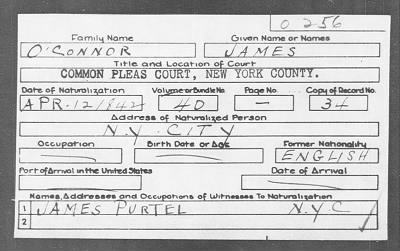 O 256
Family Name Given Name or Names
O'CONNOR JAMES
Title and Location of Court
COMMON PLEAS COURT, NEW YORK COUNTY.
Date of Naturalization Volume or Bundle No. Page No. Copy of Record No.
APR. 12/1842 40 — 34
Address of Naturalized Person
N.Y. CITY
Occupation Birth Date or Age Former Nationality
ENGLISH
Port of Arrival in the United States Date of Arrival
Names, Addresses and Occupations of Witnesses To Naturalization
1 JAMES PURTEL N.Y.C
2